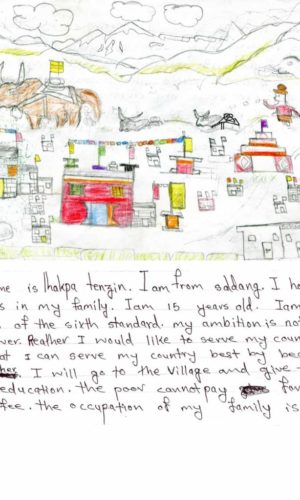 me is lhakpa tenzin. I am from saldang. I ha
s in my family. I am 15 years old. I am
of the sixth standard. my ambition is no
ver. Reather I would like to serve my coun
at I can serve my country best by be
I will go to the village and give
education. the poor cannot pay for
fee. the occupation of my family is